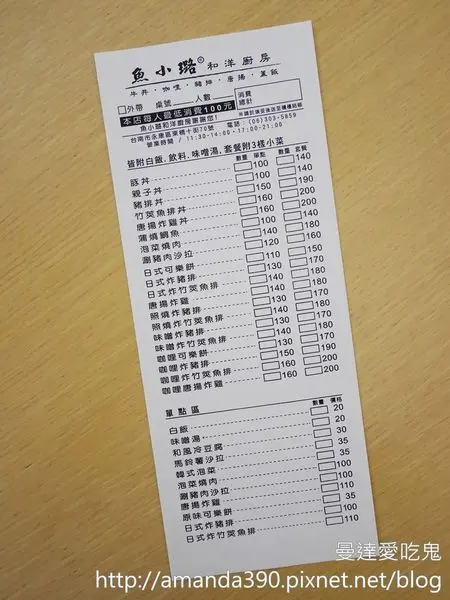 魚小璐® 和洋廚房
牛丼・咖哩・豬排・唐揚・蓋飯
外帶 桌號 人數 消費
總計
本店每人最低消費100元
魚小璐和洋廚房謝謝您!
台南市永康區東橋十街70號 電話:(06)303-5859
營業時間 / 11:30-14:00・17:00-21:00
皆附白飯,飲料,味噌湯,套餐附3樣小菜
數量 單點 數量 套餐
豚丼 100 140
親子丼 100 140
豬排丼 150 190
竹筴魚排丼 160 200
唐揚炸雞丼 160 200
蒲燒鯛魚
泡菜燒肉
涮豬肉沙拉
日式可樂餅
日式炸豬排
日式炸竹筴魚排
唐揚炸雞
照燒炸豬排
照燒炸竹筴魚排
味噌炸豬排
味噌炸竹筴魚排
咖哩可樂餅
咖哩炸豬排 150 190
咖哩炸竹筴魚排 160 200
咖哩唐揚炸雞 160 200
單點區 數量 價格
白飯 20
味噌湯 20
和風冷豆腐 30
馬鈴薯沙拉 35
韓式泡菜 35
泡菜燒肉 100
涮豬肉沙拉 100
唐揚炸雞
原味可樂餅 35
日式炸豬排 100
日式炸竹筴魚排 110
曼達愛吃鬼
http://amanda390.pixnet.net/blog